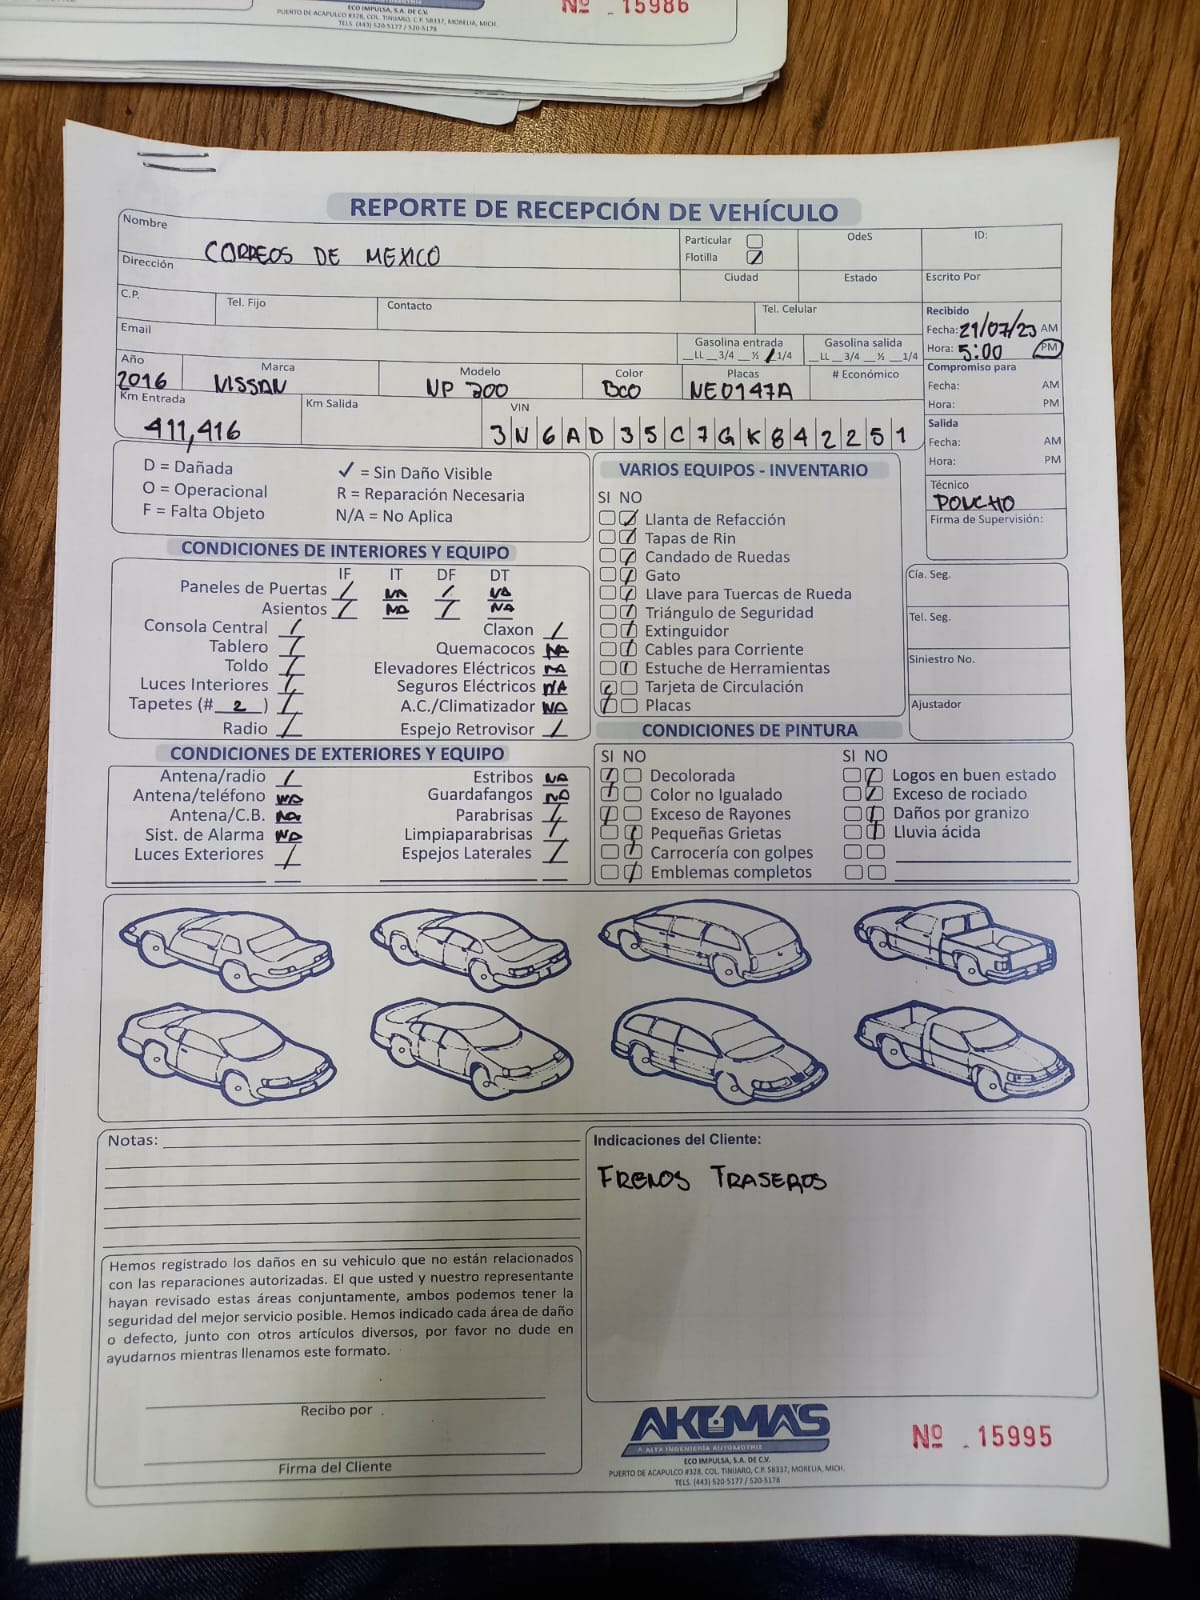 ECO IMPULSA, S.A. DE C.V.
PUERTO DE ACAPULCO #328, COL. TINIJARO, C.P. 58337, MORELIA, MICH.
TELS. (443) 520-5177 / 520-5178
Nº 15986
REPORTE DE RECEPCIÓN DE VEHÍCULO
Nombre
CORREOS DE MEXICO
Particular
Flotilla
OdeS
ID:
Dirección
Ciudad
Estado
Escrito Por
C.P.
Tel. Fijo
Contacto
Tel. Celular
Recibido
Fecha: 21/07/23 AM
Hora: 5:00 PM
Email
Gasolina entrada
__LL __3/4 __½ __1/4
Gasolina salida
__LL __3/4 __½ __1/4
Año
2016
Marca
NISSAN
Modelo
NP 300
Color
BCO
Placas
NE0147A
# Económico
Compromiso para
Fecha: AM
Hora: PM
Km Entrada
411,416
Km Salida
VIN
3N6AD35C7GK842251
Salida
Fecha: AM
Hora: PM
D = Dañada
O = Operacional
F = Falta Objeto
✓ = Sin Daño Visible
R = Reparación Necesaria
N/A = No Aplica
Técnico
PONCHO
Firma de Supervisión:
CONDICIONES DE INTERIORES Y EQUIPO
IF IT DF DT
Paneles de Puertas / NA / NA
Asientos / NA / NA
Consola Central /
Tablero /
Toldo /
Luces Interiores /
Tapetes (# 2 ) /
Radio /
Claxon /
Quemacocos NA
Elevadores Eléctricos NA
Seguros Eléctricos N/A
A.C./Climatizador NA
Espejo Retrovisor /
VARIOS EQUIPOS - INVENTARIO
SI NO
Llanta de Refacción
Tapas de Rin
Candado de Ruedas
Gato
Llave para Tuercas de Rueda
Triángulo de Seguridad
Extinguidor
Cables para Corriente
Estuche de Herramientas
Tarjeta de Circulación
Placas
Cía. Seg.
Tel. Seg.
Siniestro No.
Ajustador
CONDICIONES DE EXTERIORES Y EQUIPO
Antena/radio /
Antena/teléfono NA
Antena/C.B. NA
Sist. de Alarma NA
Luces Exteriores /
Estribos NA
Guardafangos NA
Parabrisas /
Limpiaparabrisas /
Espejos Laterales /
CONDICIONES DE PINTURA
SI NO
Decolorada
Color no Igualado
Exceso de Rayones
Pequeñas Grietas
Carrocería con golpes
Emblemas completos
SI NO
Logos en buen estado
Exceso de rociado
Daños por granizo
Lluvia ácida
Notas:
Indicaciones del Cliente:
FRENOS TRASEROS
Hemos registrado los daños en su vehiculo que no están relacionados
con las reparaciones autorizadas. El que usted y nuestro representante
hayan revisado estas áreas conjuntamente, ambos podemos tener la
seguridad del mejor servicio posible. Hemos indicado cada área de daño
o defecto, junto con otros artículos diversos, por favor no dude en
ayudarnos mientras llenamos este formato.
Recibo por
Firma del Cliente
AKUMA'S
ALTA INGENIERÍA AUTOMOTRIZ
ECO IMPULSA, S.A. DE C.V.
PUERTO DE ACAPULCO #328, COL. TINIJARO, C.P. 58337, MORELIA, MICH.
TELS. (443) 520-5177 / 520-5178
Nº 15995